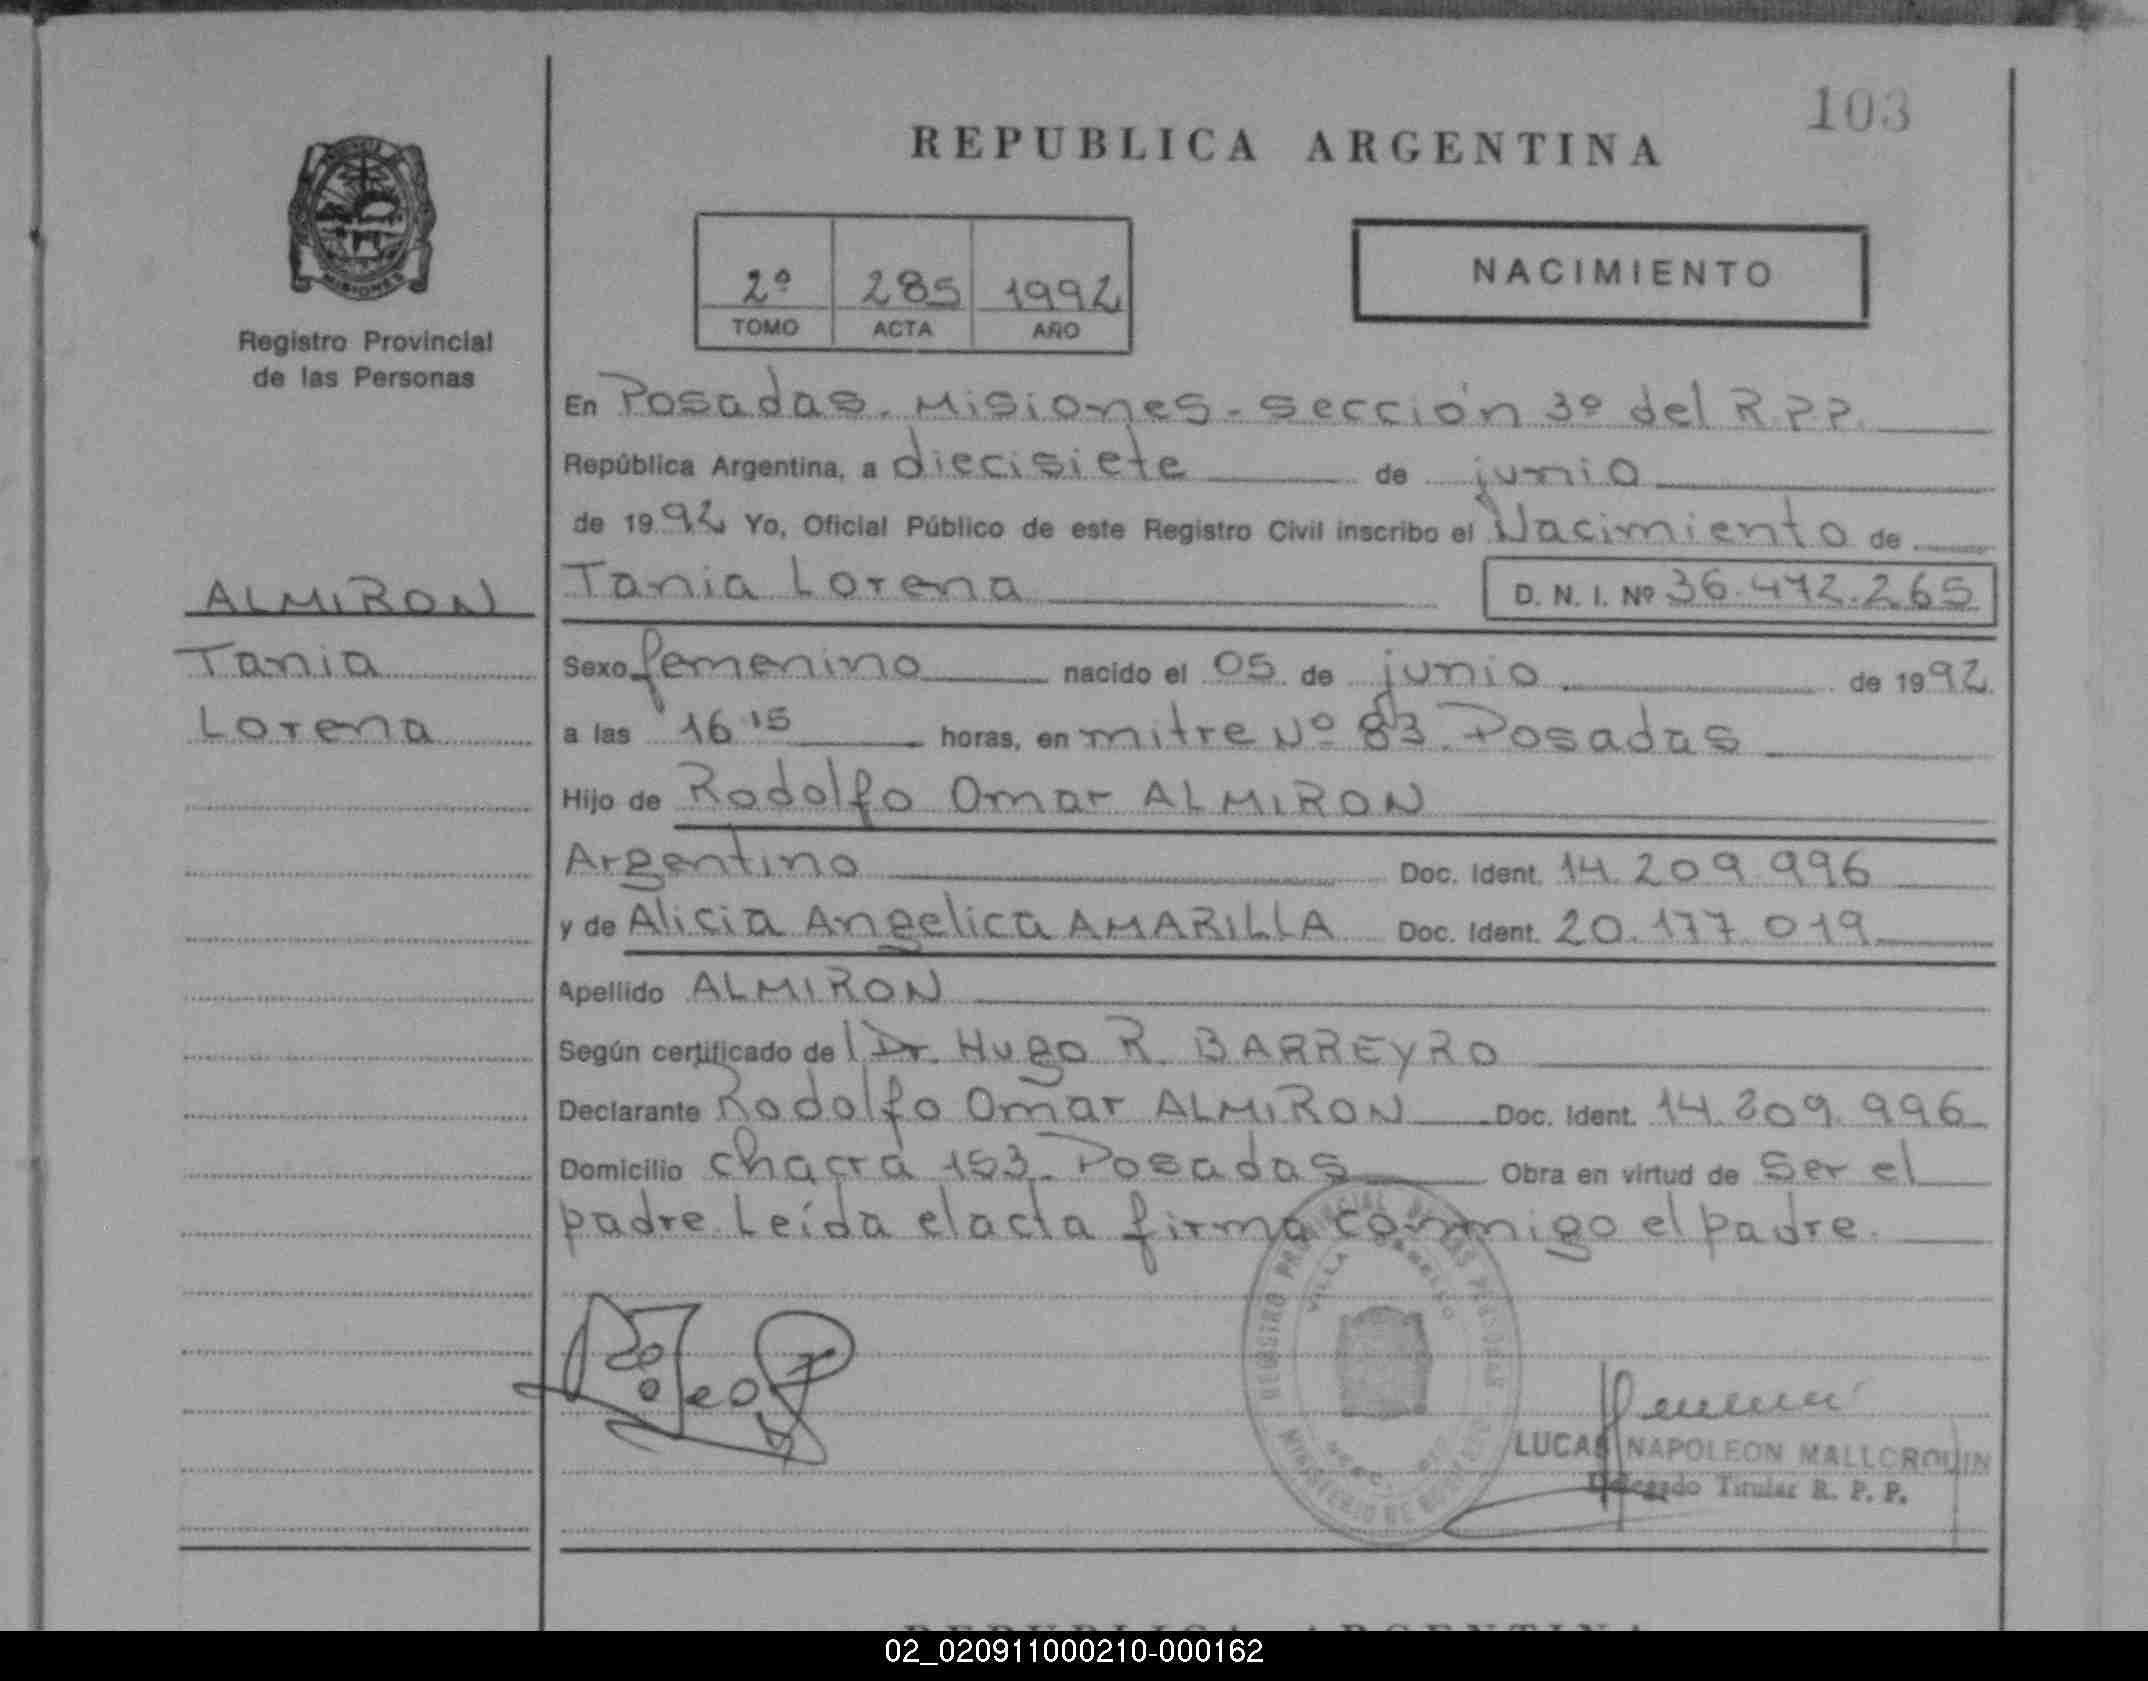 103
REPUBLICA ARGENTINA
MISIONES
Registro Provincial
de las Personas
2º 285 1992
TOMO ACTA AÑO
NACIMIENTO
En Posadas. Misiones - sección 3º del R.P.P.
República Argentina, a diecisiete de junio
de 1992 Yo, Oficial Público de este Registro Civil inscribo el Nacimiento de
ALMIRON
Tania Lorena D. N. I. Nº 36.472.265
Tania
Sexo femenino nacido el 05 de junio de 1992
Lorena
a las 16 15 horas, en mitre Nº 83. Posadas
Hijo de Rodolfo Omar ALMIRON
Argentino Doc. Ident. 14.209.996
y de Alicia Angelica AMARILLA Doc. Ident. 20.177.019
Apellido ALMIRON
Según certificado de Dr. Hugo R. BARREYRO
Declarante Rodolfo Omar ALMIRON Doc. Ident. 14.209.996
Domicilio chacra 153. Posadas Obra en virtud de ser el
padre. Leída el acta firma conmigo el padre.
REGISTRO PROVINCIAL DE LAS PERSONAS
VILLA CABELLO
MINISTERIO DE GOBIERNO
LUCAS NAPOLEON MALLORQUIN
Delegado Titular R. P. P.
REPUBLICA ARGENTINA
02_020911000210-000162